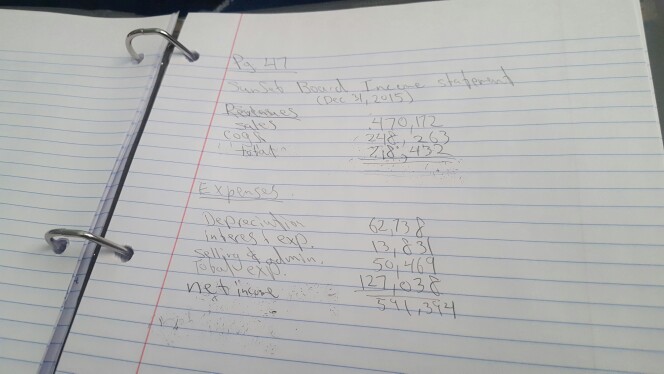 Pg 47
Sunset Board Income statement
(Dec 31, 2015)
Revenues
sales 470,172
COGS 248,263
total 218,432
Expenses
Depreciatin 62,738
interest exp. 13,831
selling & admin. 50,469
Total exp. 127,038
net income 591,394